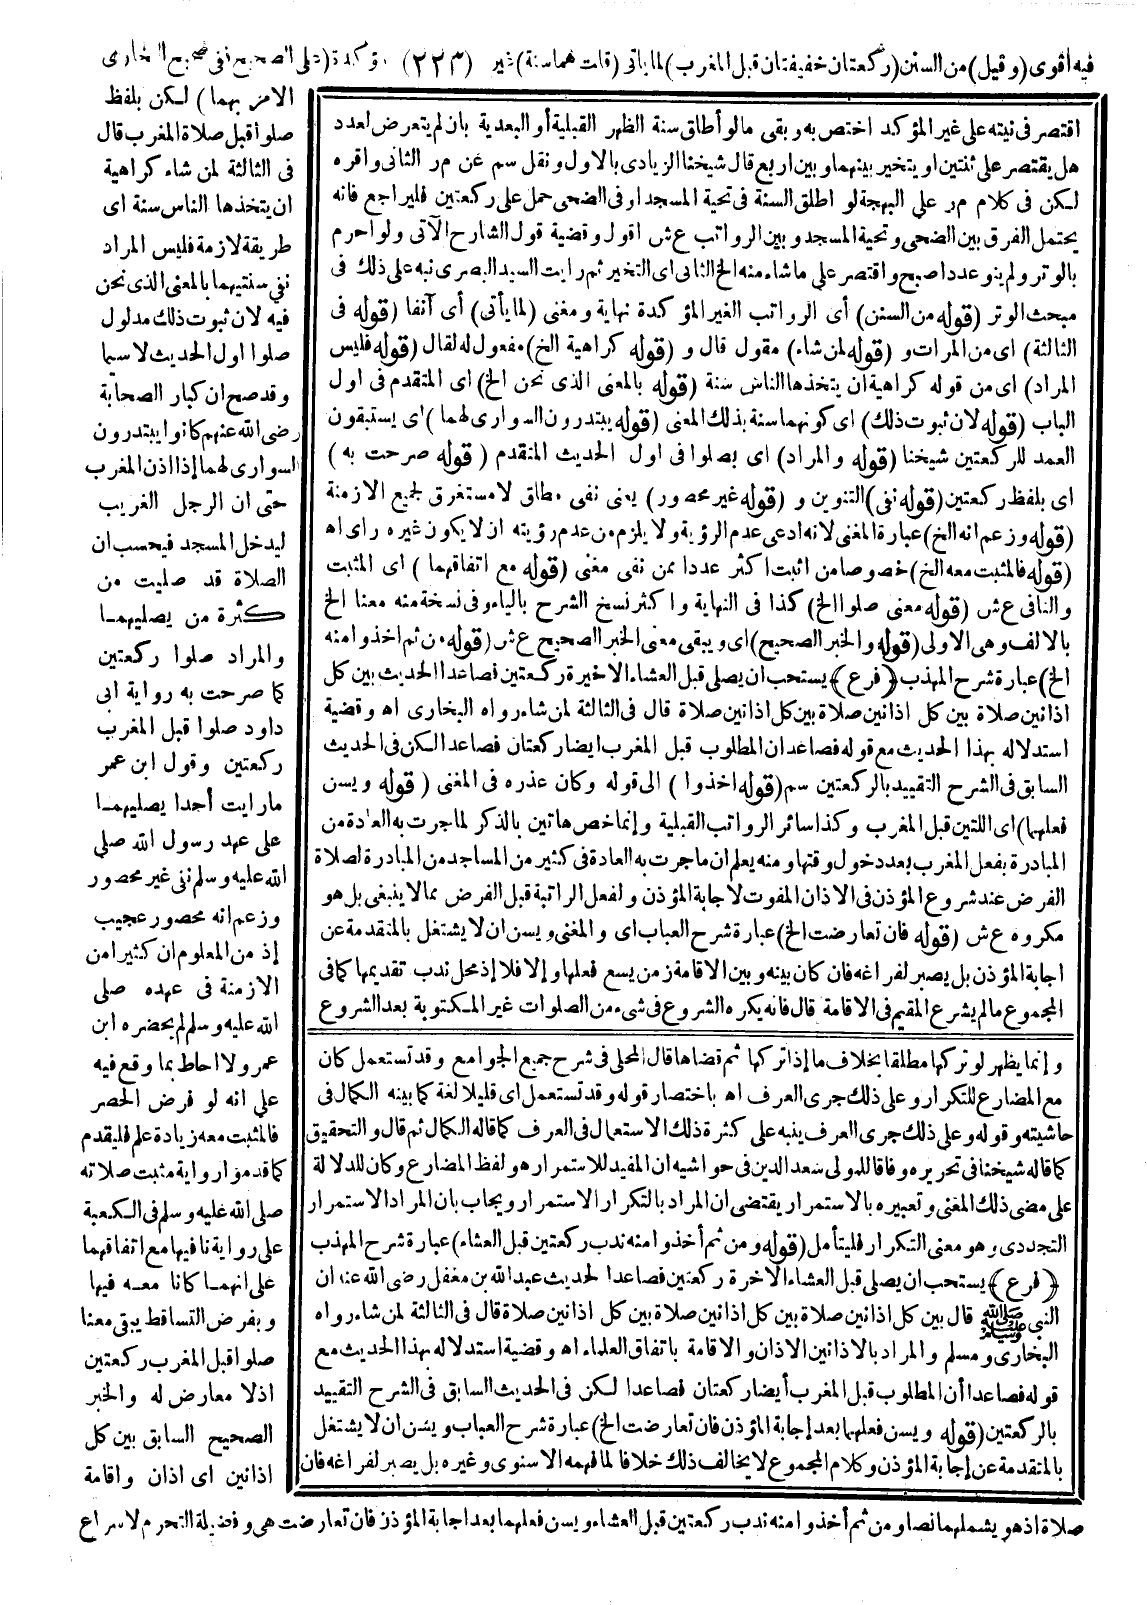 فيه أقوى (وقيل) من السنن (ركعتان خفيفتان قبل المغرب) لما يأتى (قلت هما سنة) غير (٢٢٣) مؤكدة (على الصحيح ففى صحيح البخارى
الامر بهما) لكن بلفظ
صلوا قبل صلاة المغرب قال
فى الثالثة لمن شاء كراهية
ان يتخذها الناس سنة اى
طريقة لازمة فليس المراد
نفى سنتيهما بالمعنى الذى نحن
فيه لان ثبوت ذلك مدلول
صلوا اول الحديث لاسيما
وقد صح ان كبار الصحابة
رضى الله عنهم كانوا يبتدرون
السوارى لهما إذا اذن المغرب
حتى ان الرجل الغريب
ليدخل المسجد فيحسب ان
الصلاة قد صليت من
كثرة من يصليهما
والمراد صلوا ركعتين
كما صرحت به رواية ابى
داود صلوا قبل المغرب
ركعتين وقول ابن عمر
ما رايت أحدا يصليهما
على عهد رسول الله صلى
الله عليه وسلم نفى غير محصور
وزعم انه محصور عجيب
إذ من المعلوم ان كثيرا من
الازمنة فى عهده صلى
الله عليه وسلم لم يحضره ابن
عمر ولا احاط بما وقع فيه
على انه لو فرض الحصر
فالمثبت معه زيادة علم فليقدم
كما قدموا رواية مثبت صلاته
صلى الله عليه وسلم فى الكعبة
على رواية نافيها مع اتفاقهما
على انهما كانا معه فيها
وبفرض التساقط يبقى معنا
صلوا قبل المغرب ركعتين
اذ لا معارض له والخبر
الصحيح السابق بين كل
اذانين اى اذان واقامة
صلاة اذ هو يشملهما نصا ومن ثم أخذوا منه ندب ركعتين قبل العشاء ويسن فعلهما بعد اجابة المؤذن فان تعارضت هى وفضيلة التحرم لاسراع
اقتصر فى نيته على غير المؤكد اختص به وبقى ما لو أطلق سنة الظهر القبلية أو البعدية بان لم يتعرض لعدد
هل يقتصر على ثنتين او يتخير بينهما وبين اربع قال شيخنا الزيادى بالاول ونقل سم عن مر الثانى واقره
لكن فى كلام مر على البهجة لو اطلق السنة فى تحية المسجد او فى الضحى حمل على ركعتين فليراجع فانه
يحتمل الفرق بين الضحى وتحية المسجد وبين الرواتب ع ش اقول وقضية قول الشارح الآتى ولو احرم
بالوتر ولم ينو عددا صبح واقتصر على ما شاء منه الخ الثانى اى التخير ثم رايت السيد البصرى نبه على ذلك فى
مبحث الوتر (قوله من السنن) أى الرواتب الغير المؤكدة نهاية ومغنى (لما يأتى) أى آنفا (قوله فى
الثالثة) اى من المرات و (قوله لمن شاء) مقول قال و (قوله كراهية الخ) مفعول له لقال (قوله فليس
المراد) اى من قوله كراهية ان يتخذها الناس سنة (قوله بالمعنى الذى نحن الخ) اى المتقدم فى اول
الباب (قوله لان ثبوت ذلك) اى كونهما سنة بذلك المعنى (قوله يبتدرون السوارى لهما) اى يستبقون
العمد للركعتين شيخنا (قوله والمراد) اى بصلوا فى اول الحديث المتقدم (قوله صرحت به)
اى بلفظ ركعتين (قوله نفى) التنوين و (قوله غير محصور) يعنى نفى مطلق لا مستغرق لجميع الازمنة
(قوله وزعم انه الخ) عبارة المغنى لانه ادعى عدم الرؤية ولا يلزم من عدم رؤيته ان لا يكون غيره راى اه
(قوله فالمثبت معه الخ) خصوصا من اثبت اكثر عددا ممن نفى مغنى (قوله مع اتفاقهما) اى المثبت
والنافى ع ش (قوله معنى صلوا الخ) كذا فى النهاية واكثر نسخ الشرح بالياء وفى نسخة منه معنا الخ
بالالف وهى الاولى (قوله والخبر الصحيح) اى ويبقى معنى الخبر الصحيح ع ش (قوله من ثم اخذوا منه
الخ) عبارة شرح المهذب ﴿فرع﴾ يستحب ان يصلى قبل العشاء الاخيرة ركعتين فصاعدا الحديث بين كل
اذانين صلاة بين كل اذانين صلاة بين كل اذانين صلاة قال فى الثالثة لمن شاء رواه البخارى اه وقضية
استدلاله بهذا الحديث مع قوله فصاعدا ان المطلوب قبل المغرب ايضا ركعتان فصاعدا لكن فى الحديث
السابق فى الشرح التقييد بالركعتين سم (قوله اخذوا) الى قوله وكان عذره فى المغنى (قوله ويسن
فعلهما) اى اللتين قبل المغرب وكذا سائر الرواتب القبلية وإنما خص هاتين بالذكر لما جرت به العادة من
المبادرة بفعل المغرب بعد دخول وقتها ومنه يعلم ان ما جرت به العادة فى كثير من المساجد من المبادرة لصلاة
الفرض عند شروع المؤذن فى الاذان المفوت لاجابة المؤذن ولفعل الراتبة قبل الفرض مما لا ينبغى بل هو
مكروه ع ش (قوله فان تعارضت الخ) عبارة شرح العباب اى والمغنى ويسن ان لا يشتغل بالمتقدمة عن
اجابة المؤذن بل يصبر لفراغه فان كان بينه وبين الاقامة زمن يسع فعلها وإلا فلا إذ محل ندب تقديمها كما فى
المجموع ما لم يشرع المقيم فى الاقامة قال فانه يكره الشروع فى شىء من الصلوات غير المكتوبة بعد الشروع
وإنما يظهر لو تركها مطلقا بخلاف ما إذا تركها ثم قضاها قال المحلى فى شرح جميع الجوامع وقد تستعمل كان
مع المضارع للتكرار وعلى ذلك جرى العرف اه باختصار قوله وقد تستعمل اى قليلا لغة كما بينه الكمال فى
حاشيته وقوله وعلى ذلك جرى العرف ينبه على كثرة ذلك الاستعمال فى العرف كما قاله الكمال ثم قال والتحقيق
كما قاله شيخنا فى تحريره وفاقا للمولى سعد الدين فى حواشيه ان المفيد للاستمرار هو لفظ المضارع وكان للدلالة
على مضى ذلك المعنى وتعبيره بالاستمرار يقتضى ان المراد بالتكرار الاستمرار ويجاب بان المراد الاستمرار
التجددى وهو معنى التكرار فليتأمل (قوله ومن ثم أخذوا منه ندب ركعتين قبل العشاء) عبارة شرح المهذب
﴿فرع﴾ يستحب ان يصلى قبل العشاء الاخرة ركعتين فصاعدا لحديث عبدالله بن مغفل رضى الله عنه ان
النبى ﷺ قال بين كل اذانين صلاة بين كل اذانين صلاة بين كل اذانين صلاة قال فى الثالثة لمن شاء رواه
البخارى ومسلم والمراد بالاذانين الاذان والاقامة باتفاق العلماء اه وقضية استدلاله بهذا الحديث مع
قوله فصاعدا أن المطلوب قبل المغرب أيضا ركعتان فصاعدا لكن فى الحديث السابق فى الشرح التقييد
بالركعتين (قوله ويسن فعلهما بعد إجابة المؤذن فان تعارضت الخ) عبارة شرح العباب ويسن ان لا يشتغل
بالمتقدمة عن إجابة المؤذن وكلام المجموع لا يخالف ذلك خلافا لما فهمه الاسنوى وغيره بل يصبر لفراغه فان